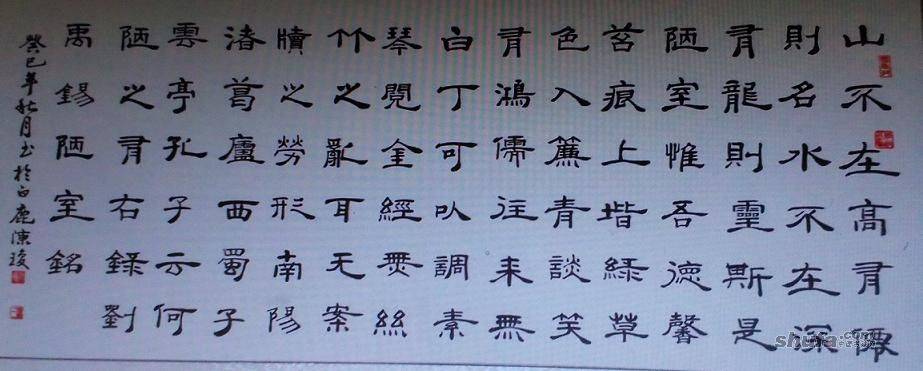 山不在高有僊
則名水不在深
有龍則靈斯是
陋室惟吾德馨
苔痕上堦綠草
色入簾青談笑
有鴻儒往來無
白丁可以調素
琴閱金經無絲
竹之亂耳无案
牘之勞形南陽
渚葛廬西蜀子
雲亭孔子云何
陋之有右錄劉
禹錫陋室銘
癸巳年秋月書於白鹿陳
shufa.com